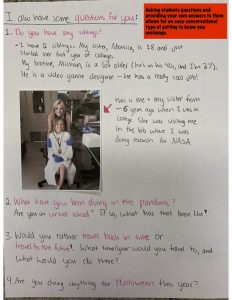 I also have some questions for you:
Asking students questions and
providing your own answers to them
allows for an easy conversational
type of getting to know you
exchange.
1. Do you have any siblings?
- I have 2 siblings. My sister, Monica, is 18 and just
started her first year of college.
My brother, Michael, is a lot older (he's in his 40s, and I'm 27).
He is a video game designer - he has a really cool job!
This is me + my sister from
~6 years ago when I was in
college. She was visiting me
in the lab where I was
doing research for NASA.
2. What have you been doing in the pandemic?
Are you in virtual school? If so, what has that been like?
3. Would you rather travel back in time or
travel to the future? What time/year would you travel to, and
what would you do there?
4. Are you doing anything for Halloween this year?